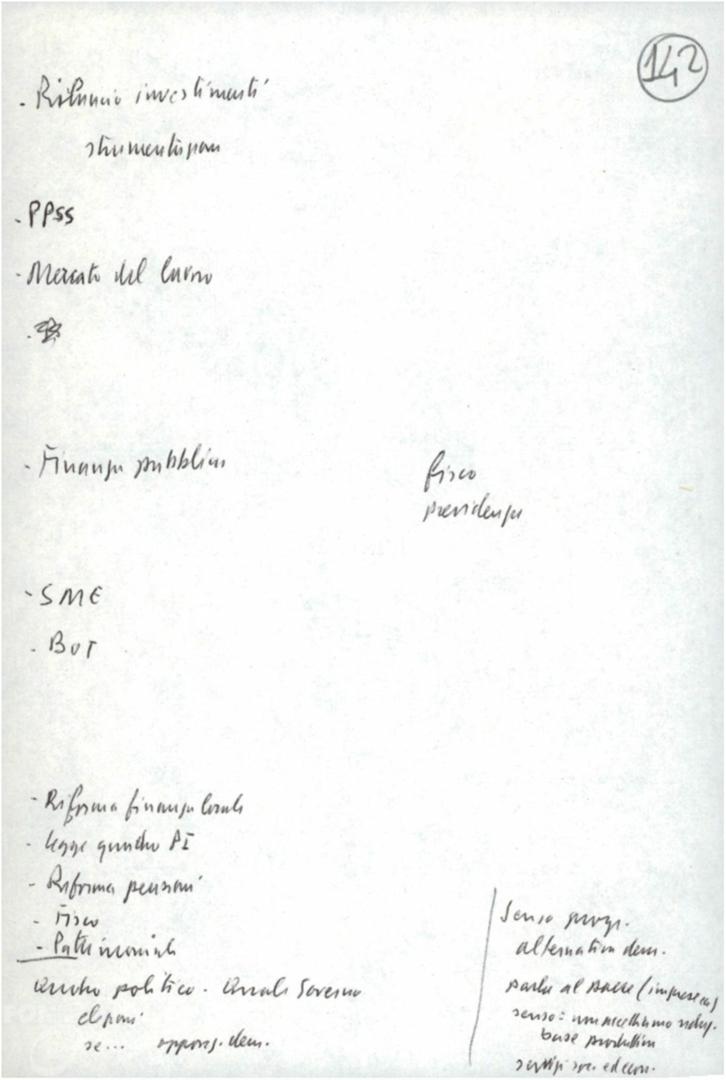 142
- Rilancio investimenti
strumentazione
- PPSS
- Mercato del lavoro
- Finanza pubblica
fisco
previdenza
- SME
- BOT
- Riforma finanza locale
- Legge quadro PI
- Riforma pensioni
- Fisco
- Patrimoniale
Quadro politico. Quale Governo
se... oppos. dem.
Senso progr.
alternativa dem.
parla al paese (imprese
senso: non accettiamo
base produttiva
servizi soc. ed econ.